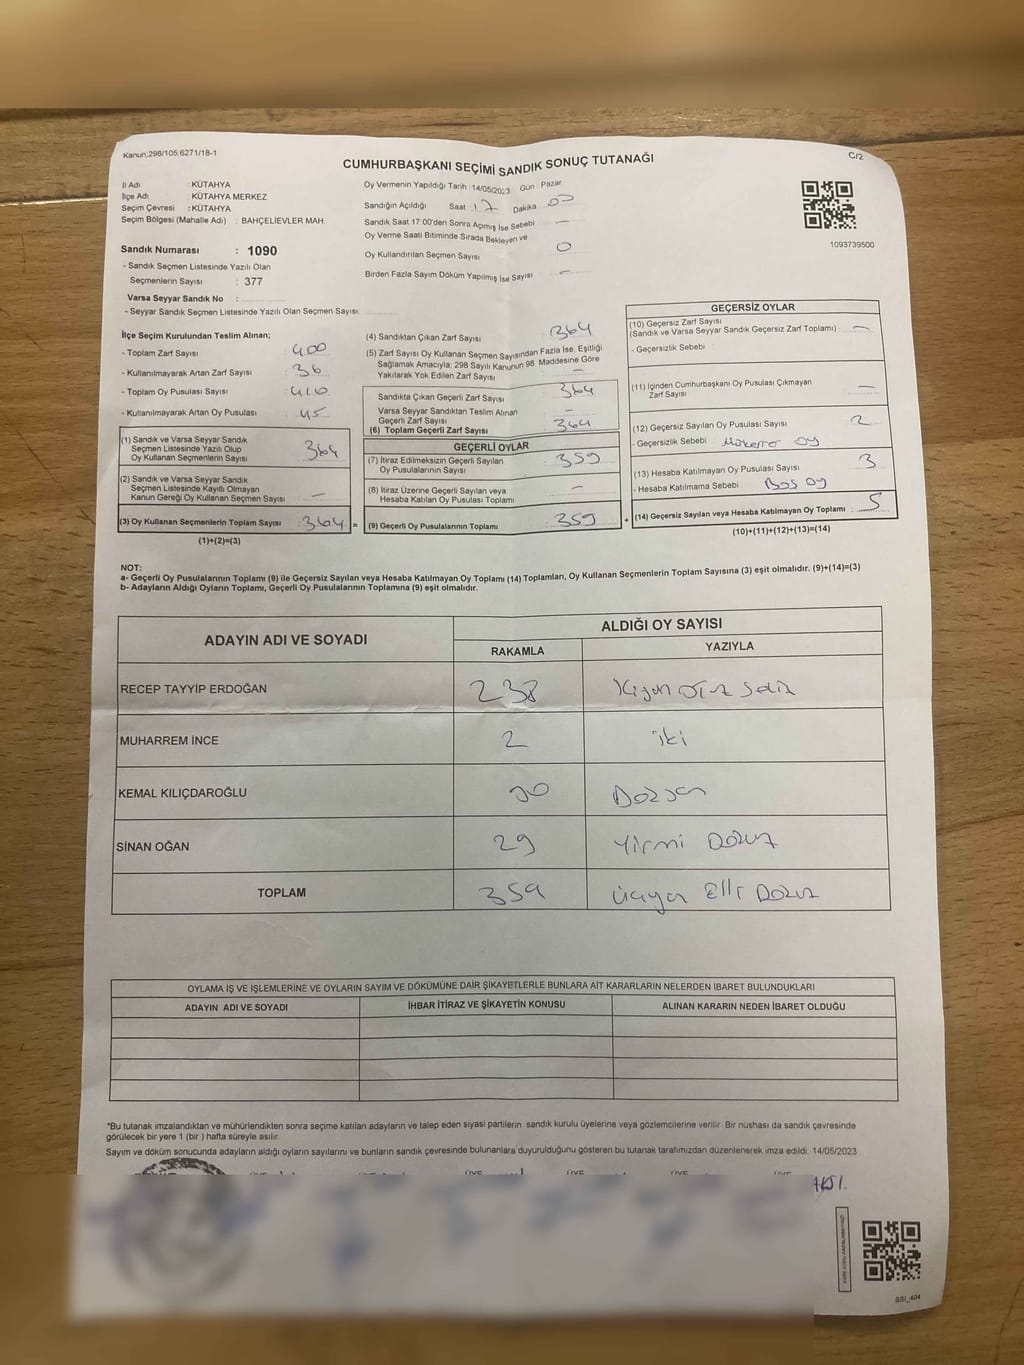 Kanun:298/105;6271/18-1
C/2
CUMHURBAŞKANI SEÇİMİ SANDIK SONUÇ TUTANAĞI
İl Adı : KÜTAHYA
İlçe Adı : KÜTAHYA MERKEZ
Seçim Çevresi : KÜTAHYA
Seçim Bölgesi (Mahalle Adı) : BAHÇELİEVLER MAH.
Sandık Numarası : 1090
- Sandık Seçmen Listesinde Yazılı Olan
Seçmenlerin Sayısı : 377
Varsa Seyyar Sandık No :
- Seyyar Sandık Seçmen Listesinde Yazılı Olan Seçmen Sayısı
Oy Vermenin Yapıldığı Tarih :14/05/2023 Gün : Pazar
Sandığın Açıldığı Saat : 17 Dakika : 00
Sandık Saat 17:00'den Sonra Açımış İse Sebebi —
Oy Verme Saati Bitiminde Sırada Bekleyen ve
Oy Kullandırılan Seçmen Sayısı 0
Birden Fazla Sayım Döküm Yapılmış İse Sayısı —
1093739500
İlçe Seçim Kurulundan Teslim Alınan;
- Toplam Zarf Sayısı : 400
- Kullanılmayarak Artan Zarf Sayısı : 36
- Toplam Oy Pusulası Sayısı : 410
- Kullanılmayarak Artan Oy Pusulası : 45
(1) Sandık ve Varsa Seyyar Sandık
Seçmen Listesinde Yazılı Olup
Oy Kullanan Seçmenlerin Sayısı : 364
(2) Sandık ve Varsa Seyyar Sandık
Seçmen Listesinde Kayıtlı Olmayan
Kanun Gereği Oy Kullanan Seçmen Sayısı : —
(3) Oy Kullanan Seçmenlerin Toplam Sayısı : 364 =
(1)+(2)=(3)
(4) Sandıktan Çıkan Zarf Sayısı : 364
(5) Zarf Sayısı Oy Kullanan Seçmen Sayısından Fazla İse, Eşitliği
Sağlamak Amacıyla; 298 Sayılı Kanunun 98. Maddesine Göre
Yakılarak Yok Edilen Zarf Sayısı : —
Sandıkta Çıkan Geçerli Zarf Sayısı : 364
Varsa Seyyar Sandıktan Teslim Alınan
Geçerli Zarf Sayısı : —
(6) Toplam Geçerli Zarf Sayısı : 364
GEÇERLİ OYLAR
(7) İtiraz Edilmeksizin Geçerli Sayılan
Oy Pusulalarının Sayısı : 359
(8) İtiraz Üzerine Geçerli Sayılan veya
Hesaba Katılan Oy Pusulası Toplamı : —
(9) Geçerli Oy Pusulalarının Toplamı : 359 +
GEÇERSİZ OYLAR
(10) Geçersiz Zarf Sayısı
(Sandık ve Varsa Seyyar Sandık Geçersiz Zarf Toplamı) : —
- Geçersizlik Sebebi :
(11) İçinden Cumhurbaşkanı Oy Pusulası Çıkmayan
Zarf Sayısı : —
(12) Geçersiz Sayılan Oy Pusulası Sayısı : 2
- Geçersizlik Sebebi : Mükerrer oy
(13) Hesaba Katılmayan Oy Pusulası Sayısı : 3
- Hesaba Katılmama Sebebi : Boş oy
(14) Geçersiz Sayılan veya Hesaba Katılmayan Oy Toplamı : 5
(10)+(11)+(12)+(13)=(14)
NOT:
a- Geçerli Oy Pusulalarının Toplamı (9) ile Geçersiz Sayılan veya Hesaba Katılmayan Oy Toplamı (14) Toplamları, Oy Kullanan Seçmenlerin Toplam Sayısına (3) eşit olmalıdır. (9)+(14)=(3)
b- Adayların Aldığı Oyların Toplamı, Geçerli Oy Pusulalarının Toplamına (9) eşit olmalıdır.
ADAYIN ADI VE SOYADI
ALDIĞI OY SAYISI
RAKAMLA YAZIYLA
RECEP TAYYİP ERDOĞAN 238 otuz sekiz
MUHARREM İNCE 2 iki
KEMAL KILIÇDAROĞLU 90 Doksan
SİNAN OĞAN 29 Yirmi Dokuz
TOPLAM 359 üçyüz Elli Dokuz
OYLAMA İŞ VE İŞLEMLERİNE VE OYLARIN SAYIM VE DÖKÜMÜNE DAİR ŞİKAYETLERLE BUNLARA AİT KARARLARIN NELERDEN İBARET BULUNDUKLARI
ADAYIN ADI VE SOYADI İHBAR İTİRAZ VE ŞİKAYETİN KONUSU ALINAN KARARIN NEDEN İBARET OLDUĞU
*Bu tutanak imzalandıktan ve mühürlendikten sonra seçime katılan adayların ve talep eden siyasi partilerin sandık kurulu üyelerine veya gözlemcilerine verilir. Bir nüshası da sandık çevresinde
görülecek bir yere 1 (bir ) hafta süreyle asılır.
Sayım ve döküm sonucunda adayların aldığı oyların sayılarını ve bunların sandık çevresinde bulunanlara duyurulduğunu gösteren bu tutanak tarafımızdan düzenlenerek imza edildi. 14/05/2023
SSI_404